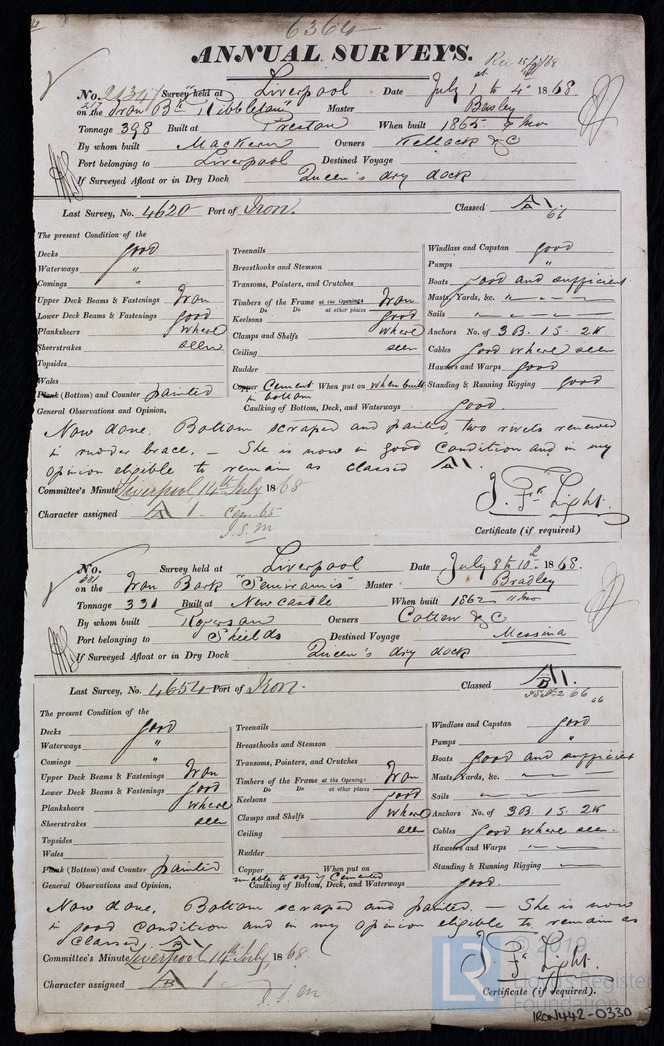 6364
ANNUAL SURVEYS.
No. Survey held at Liverpool Date July 1st to 4th 1868
on the Iron Bk "Ribbleton" Master Bewley
Tonnage 398 Built at Preston When built 1865
By whom built Mackern Owners Kellock & C
Port belonging to Liverpool Destined Voyage
If Surveyed Afloat or in Dry Dock Queen's dry dock
Last Survey, No. 4620 Port of Iron. Classed A 1. 66
The present Condition of the
Decks good
Waterways "
Comings "
Upper Deck Beams & Fastenings Iron
Lower Deck Beams & Fastenings good
Planksheers where
Sheerstrakes seen
Topsides
Wales
Plank (Bottom) and Counter painted
Treenails
Breasthooks and Stemson
Transoms, Pointers, and Crutches
Timbers of the Frame at the Openings Iron
Do Do at other places
Keelsons good
Clamps and Shelfs where
Ceiling seen
Rudder
Copper Cement When put on when built
in bottom
Caulking of Bottom, Deck, and Waterways good
Windlass and Capstan good
Pumps "
Boats good and sufficient
Masts, Yards, &c. "
Sails "
Anchors No. of 3B. 1S. 2K
Cables good where seen
Hawsers and Warps good
Standing & Running Rigging good
General Observations and Opinion,
Now done, Bottom scraped and painted two rivets renewed
in rudder brace. — She is now in good condition and in my
opinion eligible to remain as classed A 1.
Committee's Minute Liverpool, 14th July 1868
Character assigned A 1
J. Fk Light.
Certificate (if required)
No. 381 Survey held at Liverpool Date July 8 to 10th 1868.
on the Iron Bark "Semiramis" Master Bradley
Tonnage 331 Built at Newcastle When built 1862 11mo
By whom built Rogerson Owners Cottew & C
Port belonging to Shields Destined Voyage Messina
If Surveyed Afloat or in Dry Dock Queen's dry dock
Last Survey, No. 4654 Port of Iron. Classed
The present Condition of the
Decks good
Waterways "
Comings "
Upper Deck Beams & Fastenings Iron
Lower Deck Beams & Fastenings good
Planksheers where
Sheerstrakes seen
Topsides
Wales
Plank (Bottom) and Counter painted
Treenails
Breasthooks and Stemson
Transoms, Pointers, and Crutches
Timbers of the Frame at the Openings Iron
Do Do at other places
Keelsons good
Clamps and Shelfs where
Ceiling seen
Rudder
Copper When put on
unable to say if Cemented
Caulking of Bottom, Deck, and Waterways good.
Windlass and Capstan good
Pumps "
Boats good and sufficient
Masts, Yards, &c. "
Sails "
Anchors No. of 3B 1S. 2K
Cables good where seen.
Hawsers and Warps "
Standing & Running Rigging
General Observations and Opinion,
Now done, Bottom scraped and painted. — She is now
in good condition and in my opinion eligible to remain as
classed.
Committee's Minute Liverpool, 14th July 1868.
Character assigned
J. Fk Light.
Certificate (if required).
© 2019
LR Lloyd's Register
Foundation
IRON442-0330